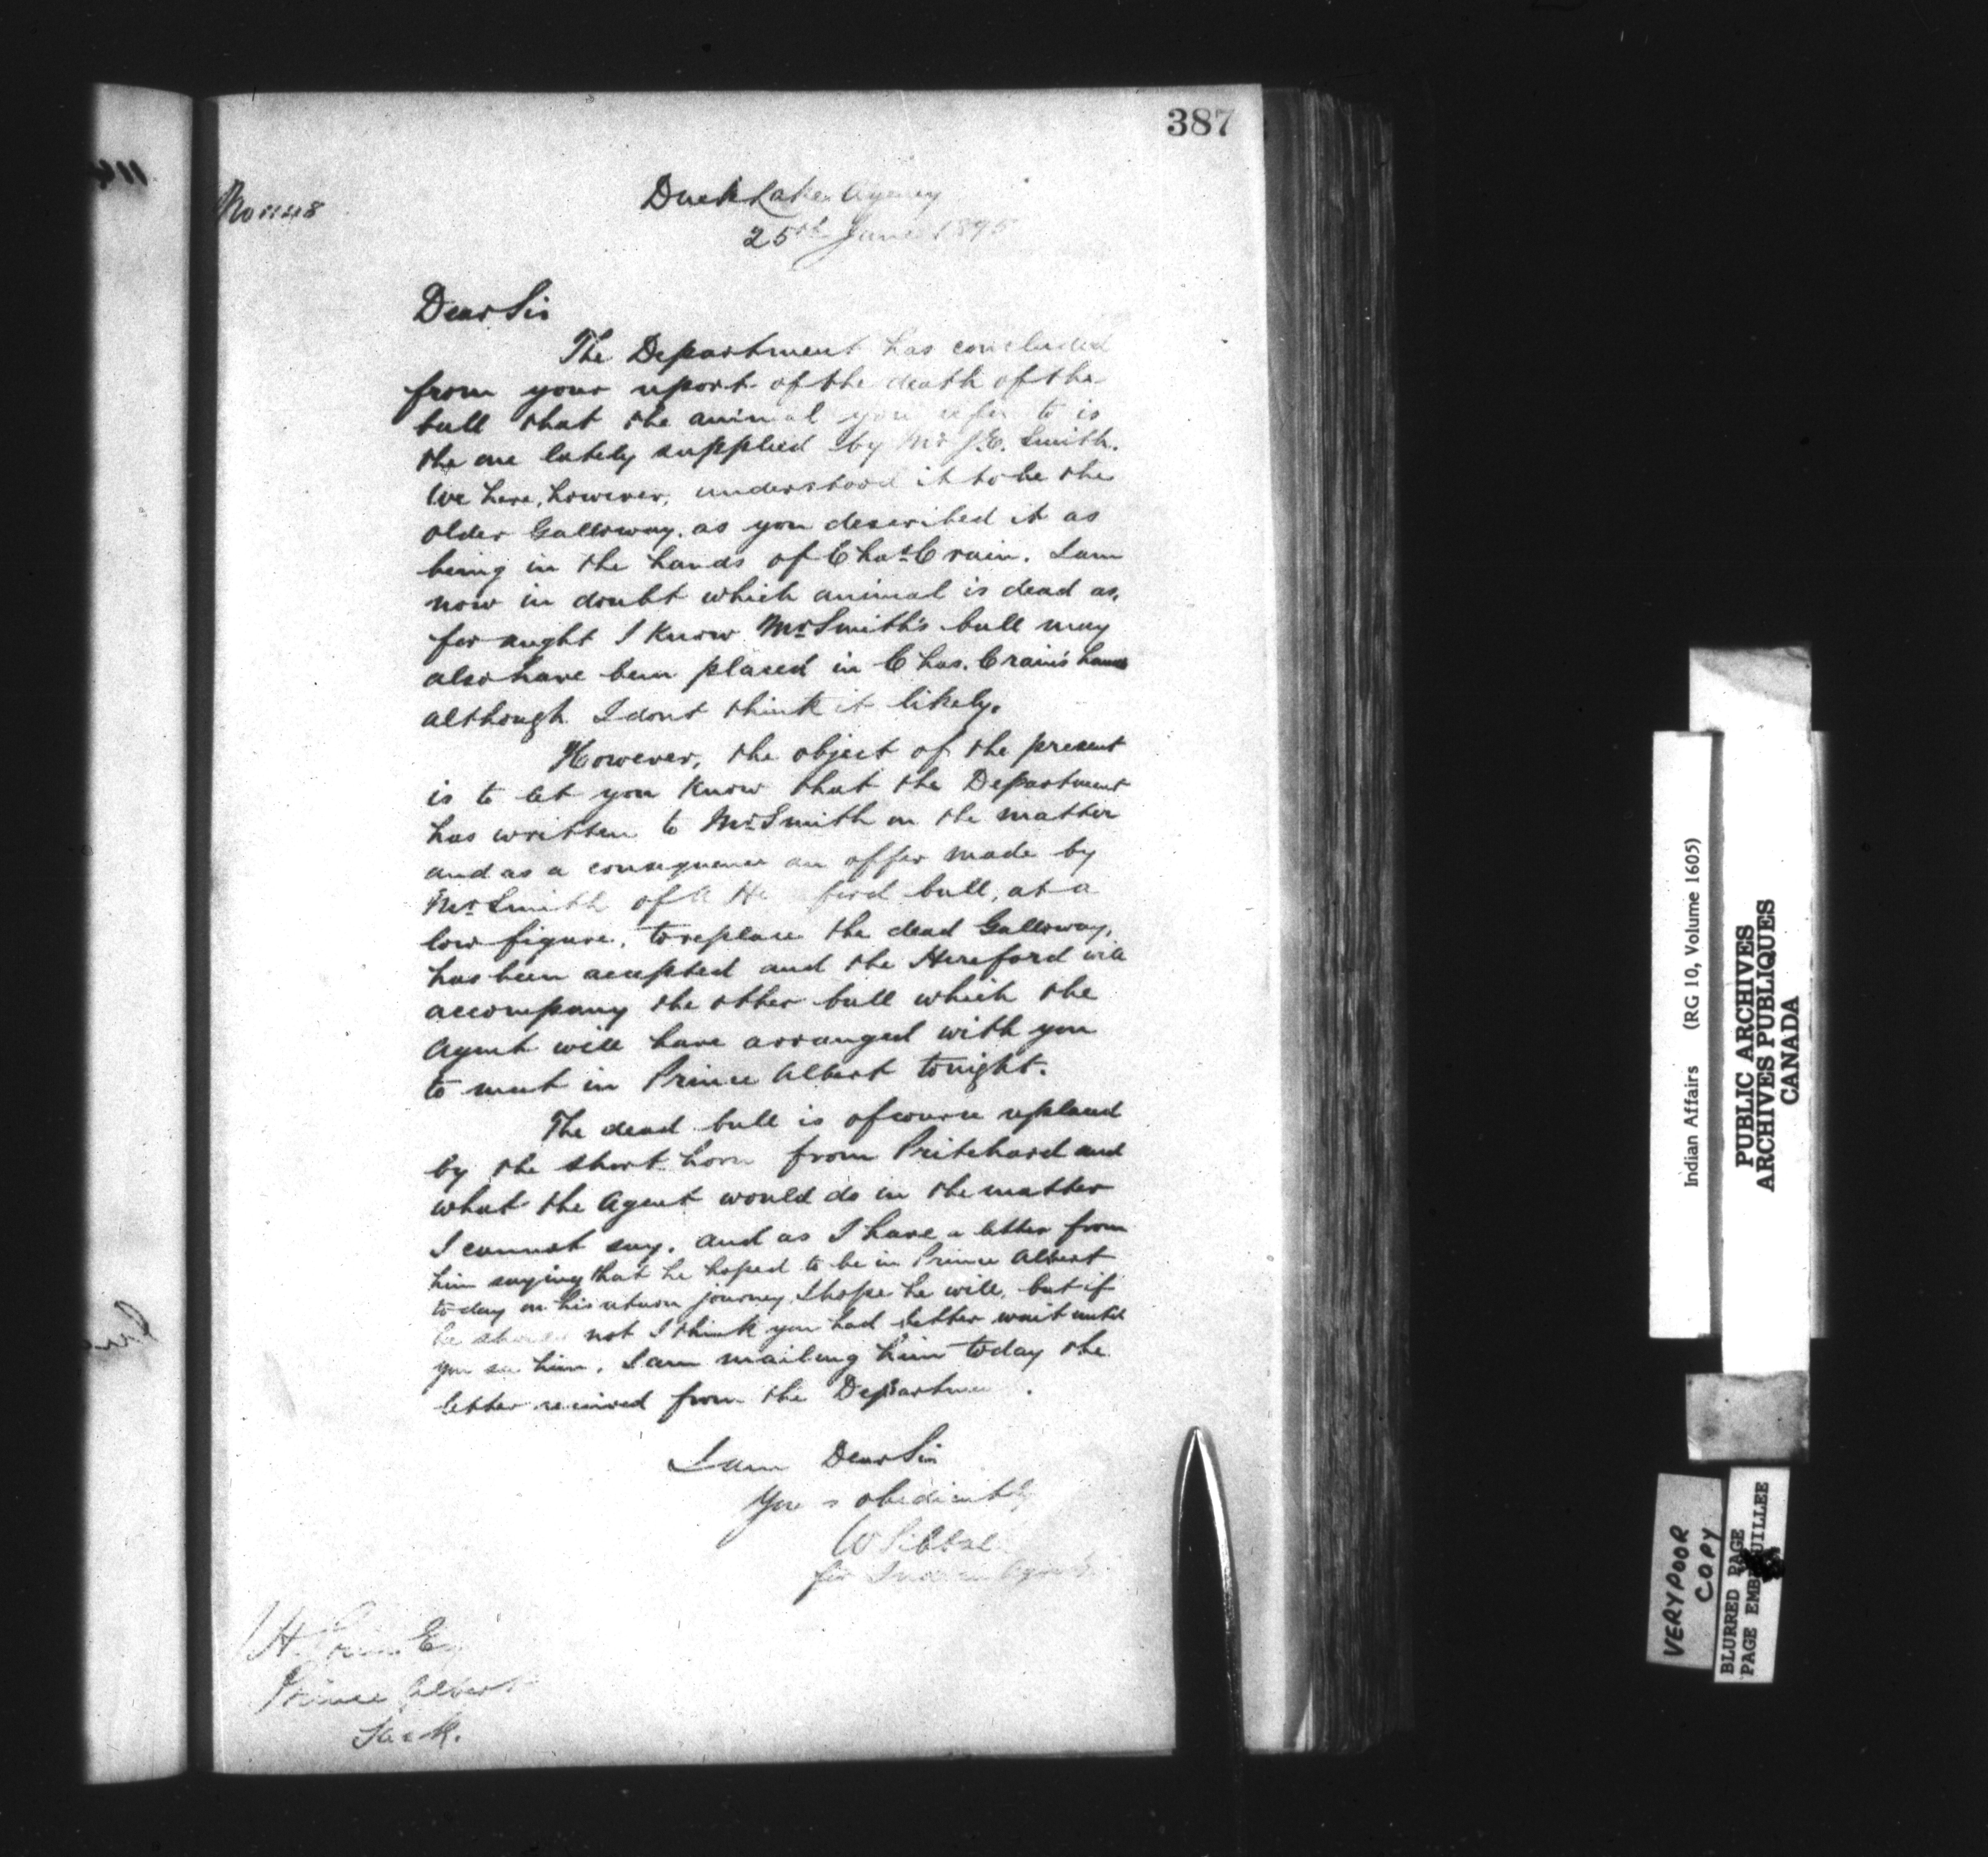 387
No 1148
Duck Lake Agency
25th June 1895
Dear Sir
The Department has concluded
from your report of the death of the
bull that the animal you refer to is
the one lately supplied by Mr J.E. Smith.
We here, however, understood it to be the
older Galloway, as you described it as
being in the hands of Chas Crain. I am
now in doubt which animal is dead as,
for aught I know Mr Smith's bull may
also have been placed in Chas. Crain's hands
although I dont think it likely.
However, the object of the present
is to let you know that the Department
has written to Mr Smith on the matter
and as a consequence an offer made by
Mr Smith of a He ford bull, at a
low figure, to replace the dead Galloway,
has been accepted and the Hereford will
accompany the other bull which the
Agent will have arranged with you
to meet in Prince Albert tonight.
The dead bull is of course replaced
by the short horn from Pritchard and
what the Agent would do in the matter
I cannot say, and as I have a letter from
him saying that he hoped to be in Prince Albert
to day on his return journey, I hope he will, but if
he should not I think you had better wait until
you see him. I am mailing him today the
letter received from the Departme .
I am Dear Sir
You s obediently
W Sibbal
for Indian Agent
Prince Albert
Sask.
Indian Affairs (RG 10, Volume 1605)
PUBLIC ARCHIVES
ARCHIVES PUBLIQUES
CANADA
VERY POOR
COPY
BLURRED PAGE
PAGE EMBROUILLEE